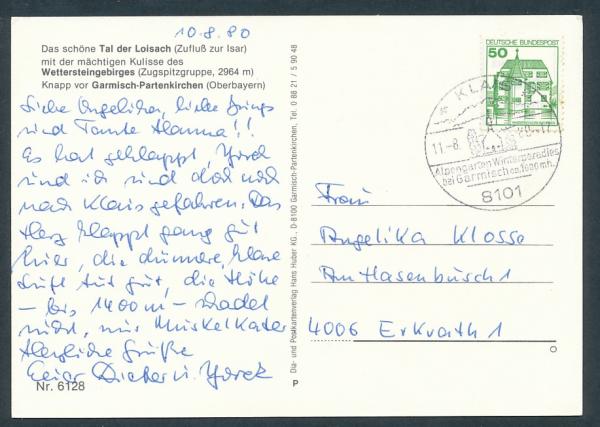 10.8.80
Das schöne Tal der Loisach (Zufluß zur Isar)
mit der mächtigen Kulisse des
Wettersteingebirges (Zugspitzgruppe, 2964 m)
Knapp vor Garmisch-Partenkirchen (Oberbayern)
Liebe Angelika, liebe
und Tante Hanna!!
Es hat geklappt,
und ich sind
nach Klais gefahren. Das
Herz klappt ganz gut
hier, die dünnere, klare
Luft tut gut, die Höhe
- bis 1400 m -
nicht, nur Muskelkater
Herzliche Grüße
Euer Dieter u.
Nr. 6128
Dia- und Postkartenverlag Hans Huber KG., D-8100 Garmisch-Partenkirchen, Tel. 0 88 21 / 5 90 48
P
DEUTSCHE BUNDESPOST
50
KLAIS
11.-8.
Alpengarten Winterparadies
bei Garmisch ca. 1000 m.
8101
Frau
Angelika Klosse
Am Hasenbusch 1
4006 Erkrath 1